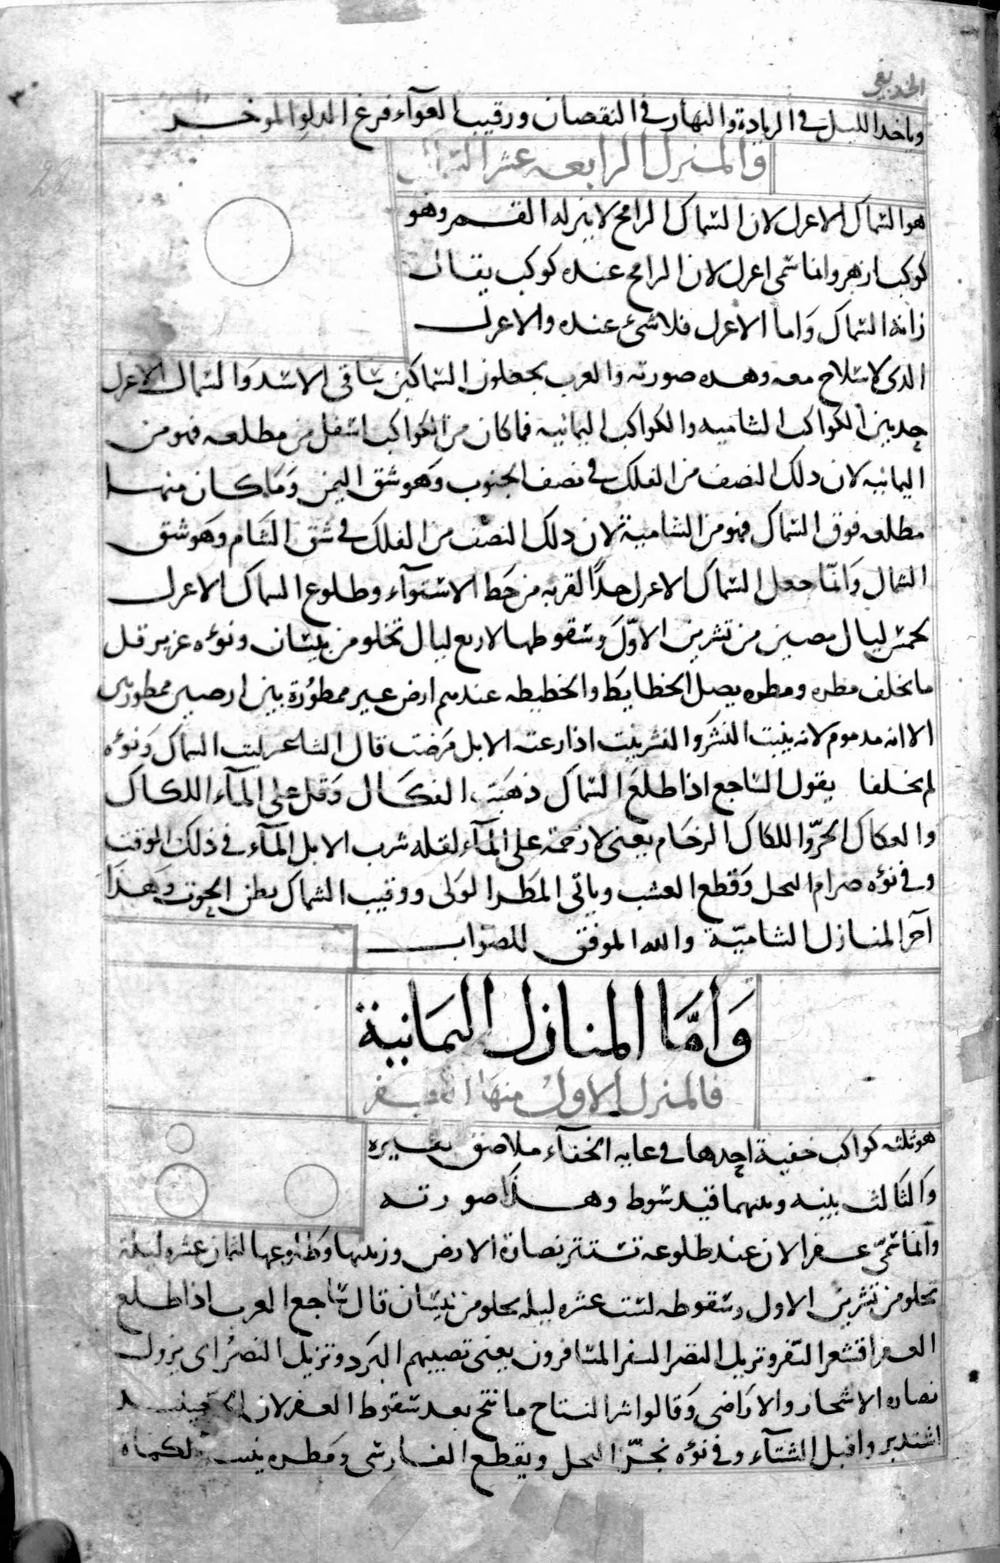 الخريفي
وياخذ الليل في الزيادة والنهار في النقصان ورقيب العوآء فرغ الدلو الموخر
والمنزل الرابعه عشر السماك
هو السماك الاعزل لان السماك الرامح لا ينزله القمر وهو
كوكب ازهر وانما سمى اعزل لان الرامح عنده كوكب يقال
راية السماك وَاما الاعزل فلا شئ عنده والاعزل
الذى لا سلاح معه وهذه صورته والعرب يجعلون السماكين ساقى الاسد وَالسماك الاعزل
حد بين الكواكب الشاميه والكواكب اليمانيه فما كان من الكواكب اسفل من مطلعه فهو من
اليمانيه لان ذلك النصف من الفلك في نصف الجنوب وَهو شق اليمن وَمَا كان منها
مطلعه فوق السماك فهو من الشامية لان ذلك النصف من الفلك في شق الشام وَهو شق
الشمال وَانما جعل السماك الاعزل حدًا لقربه من خط الاستوآء وطلوع السماك الاعزل
لخمس ليال مضين من تشرين الاوّل وسقوطها لاربع ليال تخلو من نيسان ونوءه عزير قل
ما يخلف مطره ومطره يصل الخطايط والخطيطه عندهم ارض غير ممطوُرة بين ارضين ممطورتين
الا انه مدموم لانه ينبت النشر والنشر نبت اذا رعته الابل مرضت قال الشاعر ليت السماك وَنوءه
لم يخلقا يقول الساجع اذا طلعَ السماك ذهَبَت العكاك وَقل على المآء اللكاك
والعكاك الحرّ واللكاك الزحام يعنى لا زحمة على المآء لقله شرب الابل المآء في ذلك الوقت
وفي نوءه صرام النحل وَقطع العشب وياتى المطر الولى ورقيب السماك بطن الحوت وَهذا
آخر المنازل الشاميّة والله الموفق للصواب
وَأمَّا المنازل اليمَانية
فالمنزل الاول منها الغفر
هو ثلثه كواكب خفية احدها في غايه الخفآء ملاصق
والثالث بينه وبينهما قيد سوط وهذا صورته
وانما سمّى غفرا لان عند طلوعه تستتر نضارة الارض وزينتها وطلوعها لثمان عشره ليلة
تخلو من تشرين الاول وسقوطه لست عشره ليله يخلو من نيسان قال ساجع العرب اذا طلع
الغفر اقشعر السّفر وتزيل النضر السفر المسافرون يعنى تصيبهم البرد وتزيل النضرُ اى يزول
نضاره الاشجار والاراضى وَقالوا شر النتاج ما نتج بعد سقوط الغفر لان
اشتد برد واقبل الشتآء وفي نوءه يجزّ النحل ويقطع القارسى ومَطره ينبت الكماه